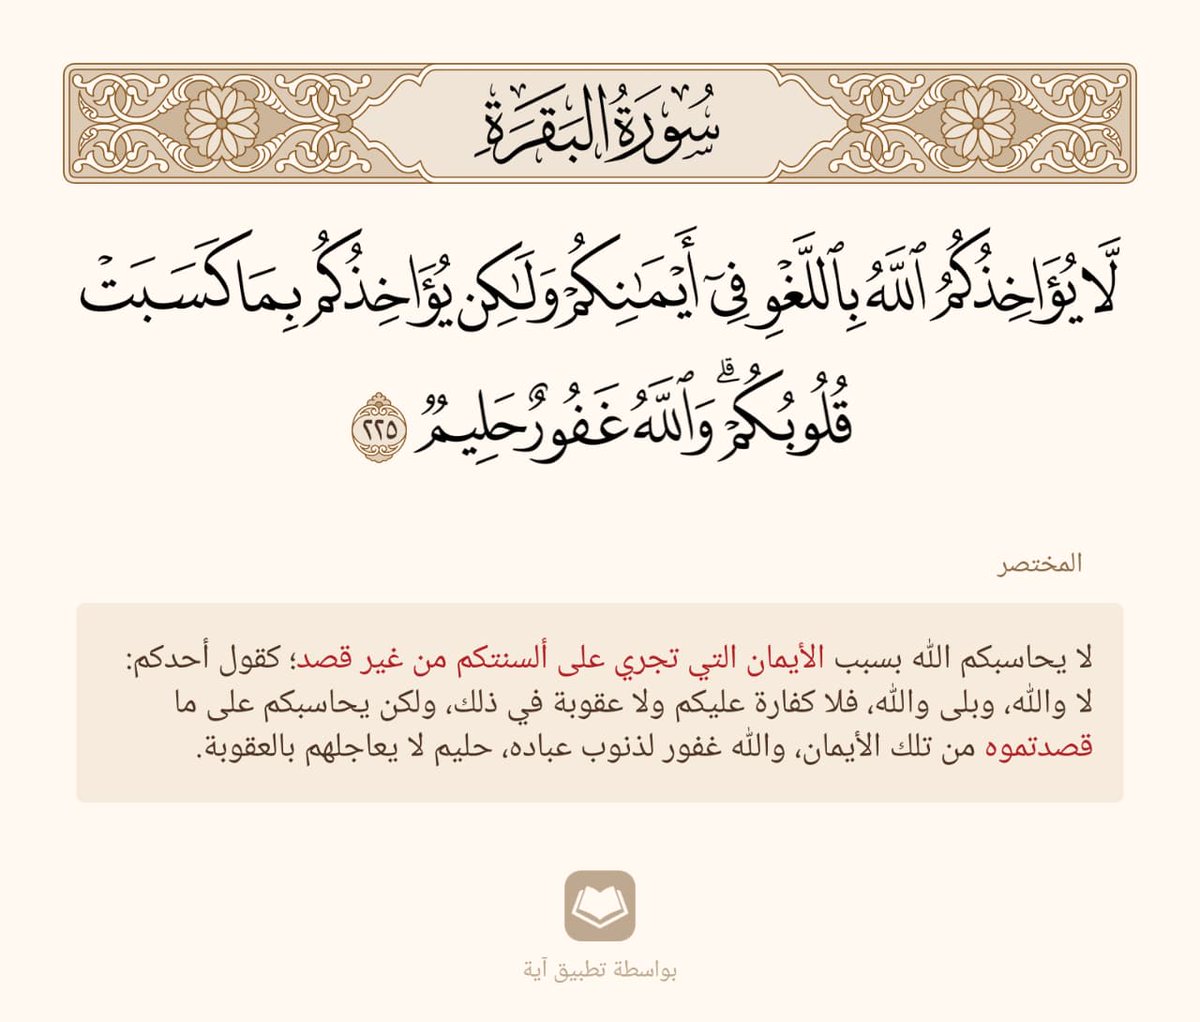 سُورَةُ البَقَرَةِ
لَّا يُؤَاخِذُكُمُ ٱللَّهُ بِٱللَّغْوِ فِىٓ أَيْمَـٰنِكُمْ وَلَـٰكِن يُؤَاخِذُكُم بِمَا كَسَبَتْ
قُلُوبُكُمْ ۗ وَٱللَّهُ غَفُورٌ حَلِيمٌ ٢٢٥
المختصر
لا يحاسبكم الله بسبب الأيمان التي تجري على ألسنتكم من غير قصد؛ كقول أحدكم:
لا والله، وبلى والله، فلا كفارة عليكم ولا عقوبة في ذلك، ولكن يحاسبكم على ما
قصدتموه من تلك الأيمان، والله غفور لذنوب عباده، حليم لا يعاجلهم بالعقوبة.
بواسطة تطبيق آية